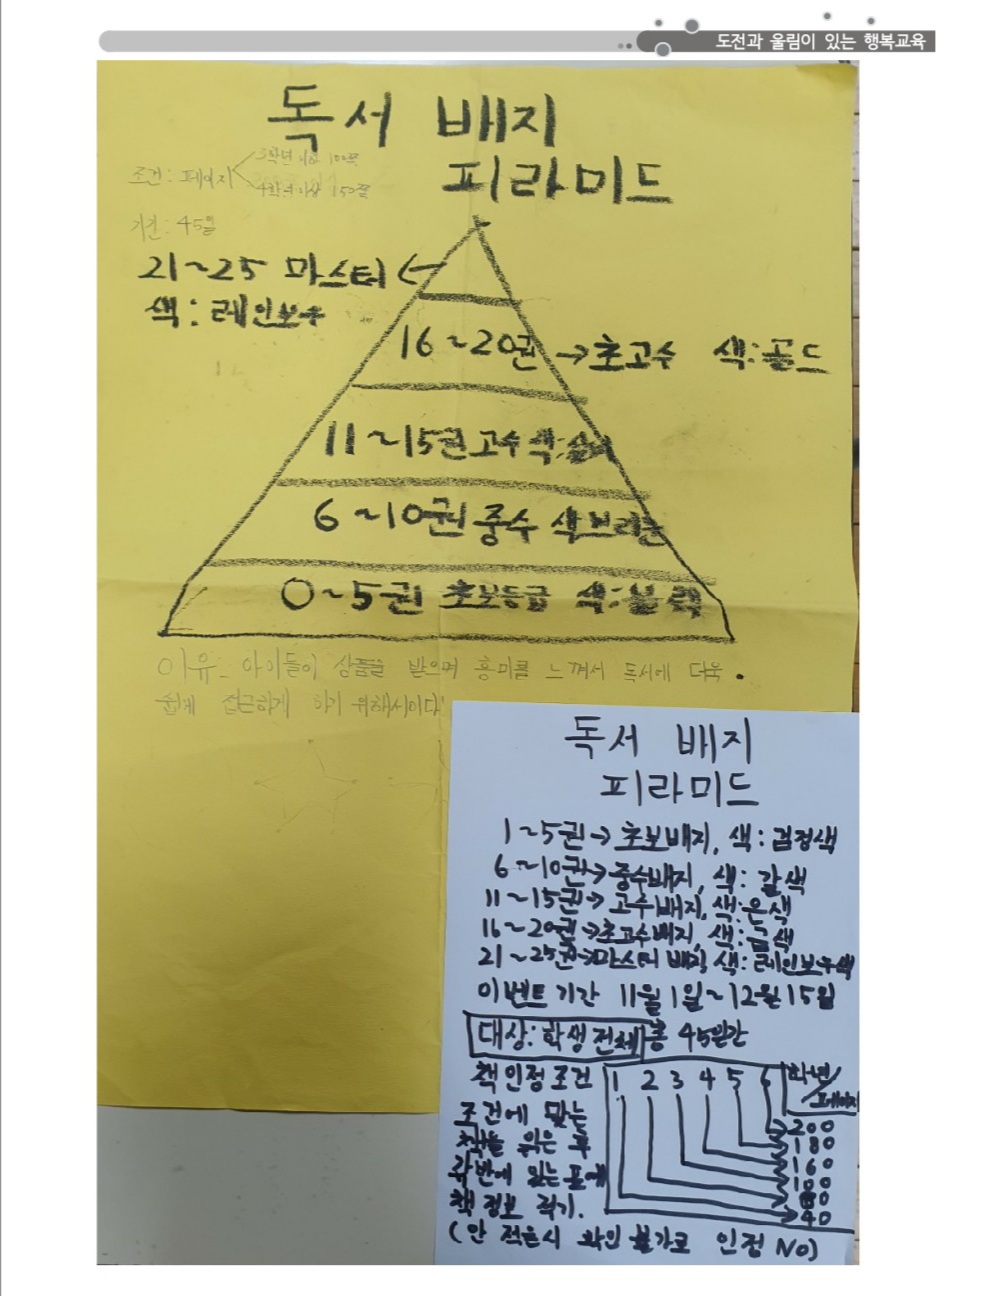 도전과 울림이 있는 행복교육
독서 배지
피라미드
조건: 페이지
3학년 이하 100쪽
4학년이상 150쪽
기간: 45일
21~25 마스터
색: 레인보우
16~20권 →초고수 색:골드
11~15권 고수 색:실버
6~10권 중수 색브라운
0~5권 초보등급 색:블랙
이유: 아이들이 상품을 받으며 흥미를 느껴서 독서에 더욱
쉽게 접근하게 하기 위해서이다
독서 배지
피라미드
1~5권→ 초보배지, 색: 검정색
6~10권→중수배지, 색: 갈색
11~15권→ 고수배지, 색:은색
16~20권→초고수배지, 색:금색
21~25권→마스터 배지, 색: 레인보우색
이벤트 기간 11월 1일~12월 15일
대상: 학생 전체 총 45일간
책 인정 조건 1 2 3 4 5 6 학년/페이지
조건에 맞는
책을 읽은 후
각반에 있는 표에
책 정보 적기.
200
180
160
100
80
40
(안 적을시 확인 불가로 인정 NO)